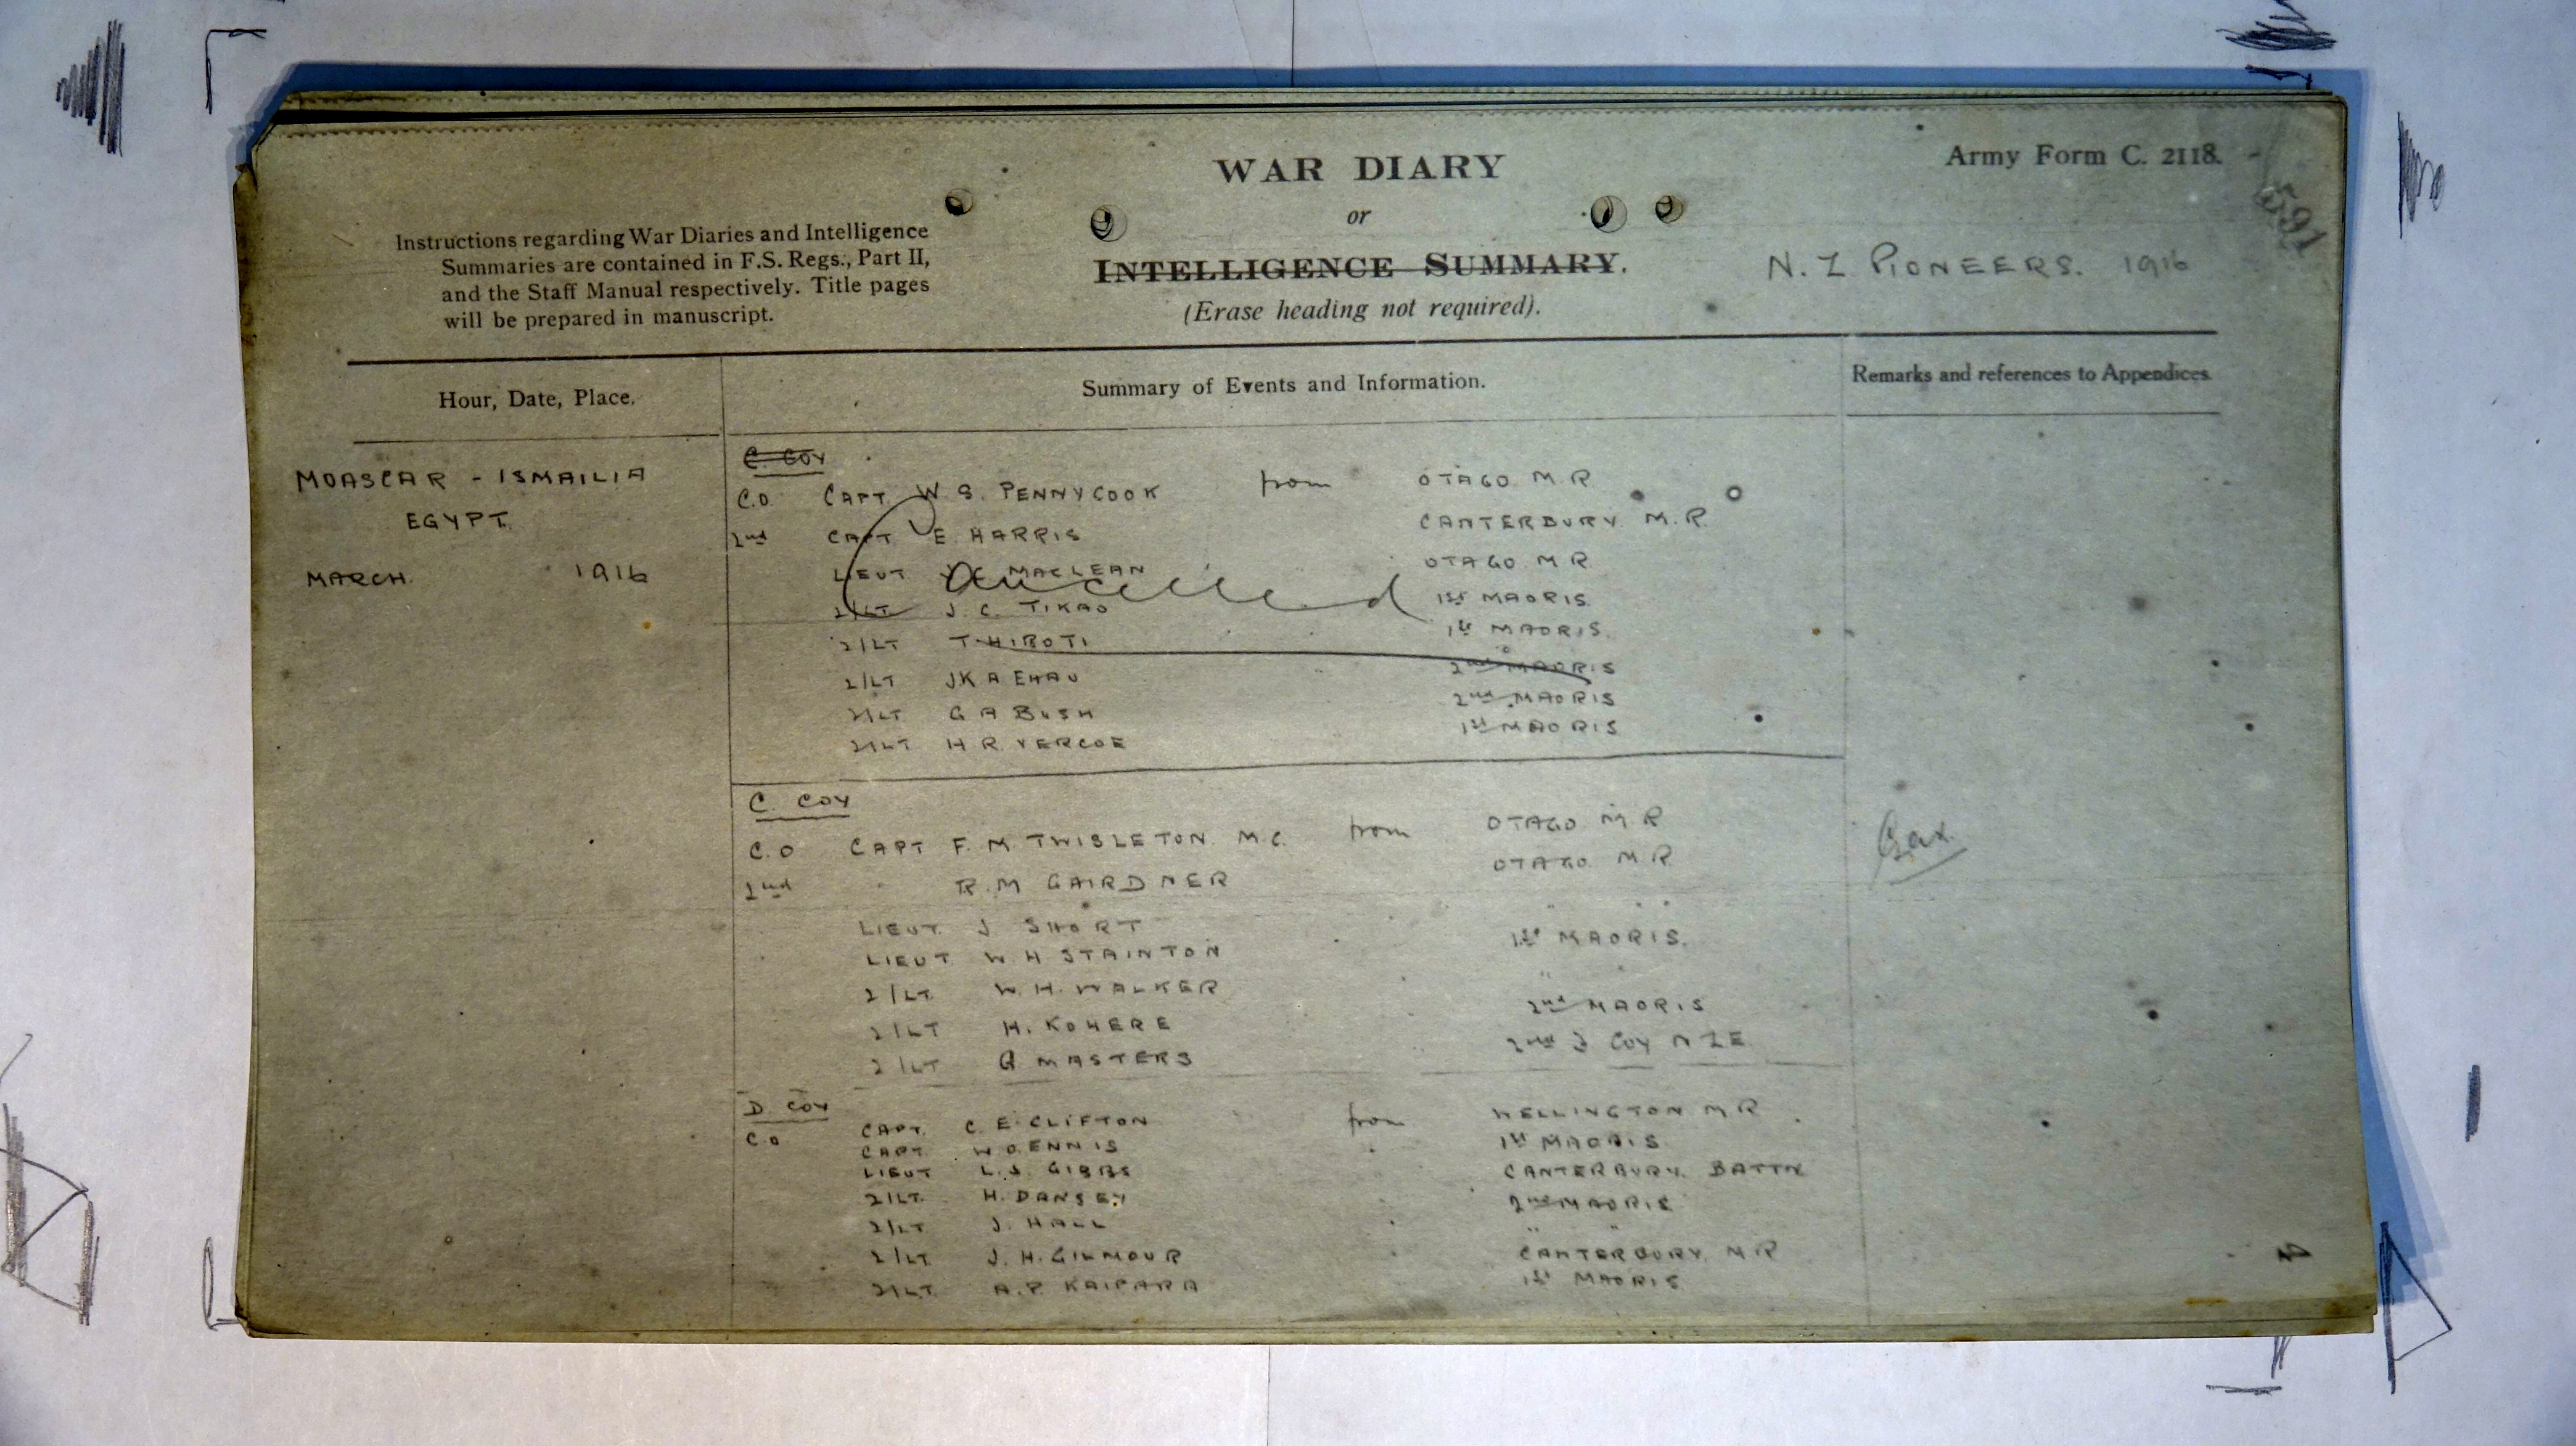 WAR DIARY
or
INTELLIGENCE SUMMARY.
(Erase heading not required).
Army Form C. 2118.
591
Instructions regarding War Diaries and Intelligence
Summaries are contained in F.S. Regs., Part II,
and the Staff Manual respectively. Title pages
will be prepared in manuscript.
N. Z PIONEERS. 1916
Hour, Date, Place.
Summary of Events and Information.
Remarks and references to Appendices.
MOASCAR - ISMAILIA
EGYPT.
MARCH. 1916
C. COY
C.O. CAPT W S. PENNYCOOK from OTAGO M R
2nd CAPT E. HARRIS CANTERBURY M.R.
LIEUT MACLEAN OTAGO M R
Cancelled
2/LT J. C. TIKAO 1st MAORIS
2/LT T HIROTI 1st MAORIS.
2/LT J K A EHAU 2nd MAORIS
2/LT G A BUSH 2nd MAORIS
2/LT H R. VERCOE 1st MAORIS
C COY
C.O CAPT F. M. TWISLETON. M.C. from OTAGO M R
2nd " R. M GAIRDNER OTAGO M R
LIEUT J SHORT " "
LIEUT W. H STAINTON 1st MAORIS.
2/LT W. H. WALKER "
2/LT H. KOHERE 2nd MAORIS
2/LT G MASTERS 2nd F COY N Z E
D COY
C.O CAPT. C. E. CLIFTON from WELLINGTON M R
CAPT. W O ENNIS 1st MAORIS
LIEUT L. S. GIBBS CANTERBURY. BATTN
2/LT. H. DANSEY 2nd MAORIS
2/LT J. HALL " "
2/LT J. H. GILMOUR CANTERBURY M R
2/LT A. P. KAIPARA 1st MAORIS
4